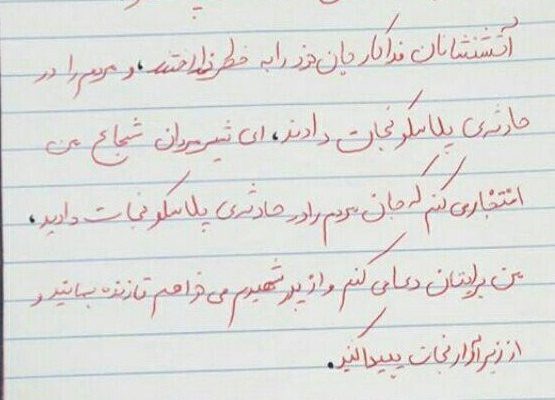 آتشنشانان فداکار جان خود را به خطر انداختند، و مردم را در
حادثه‌ی پلاسکو نجات دادند، ای شیرمردان شجاع من
افتخار می کنم که جان مردم را در حادثه‌ی پلاسکو نجات دادید،
من برایتان دعا می کنم و از پدر شهیدم می خواهم تا زنده بمانید و
از زیر آوار نجات پیدا کنید.